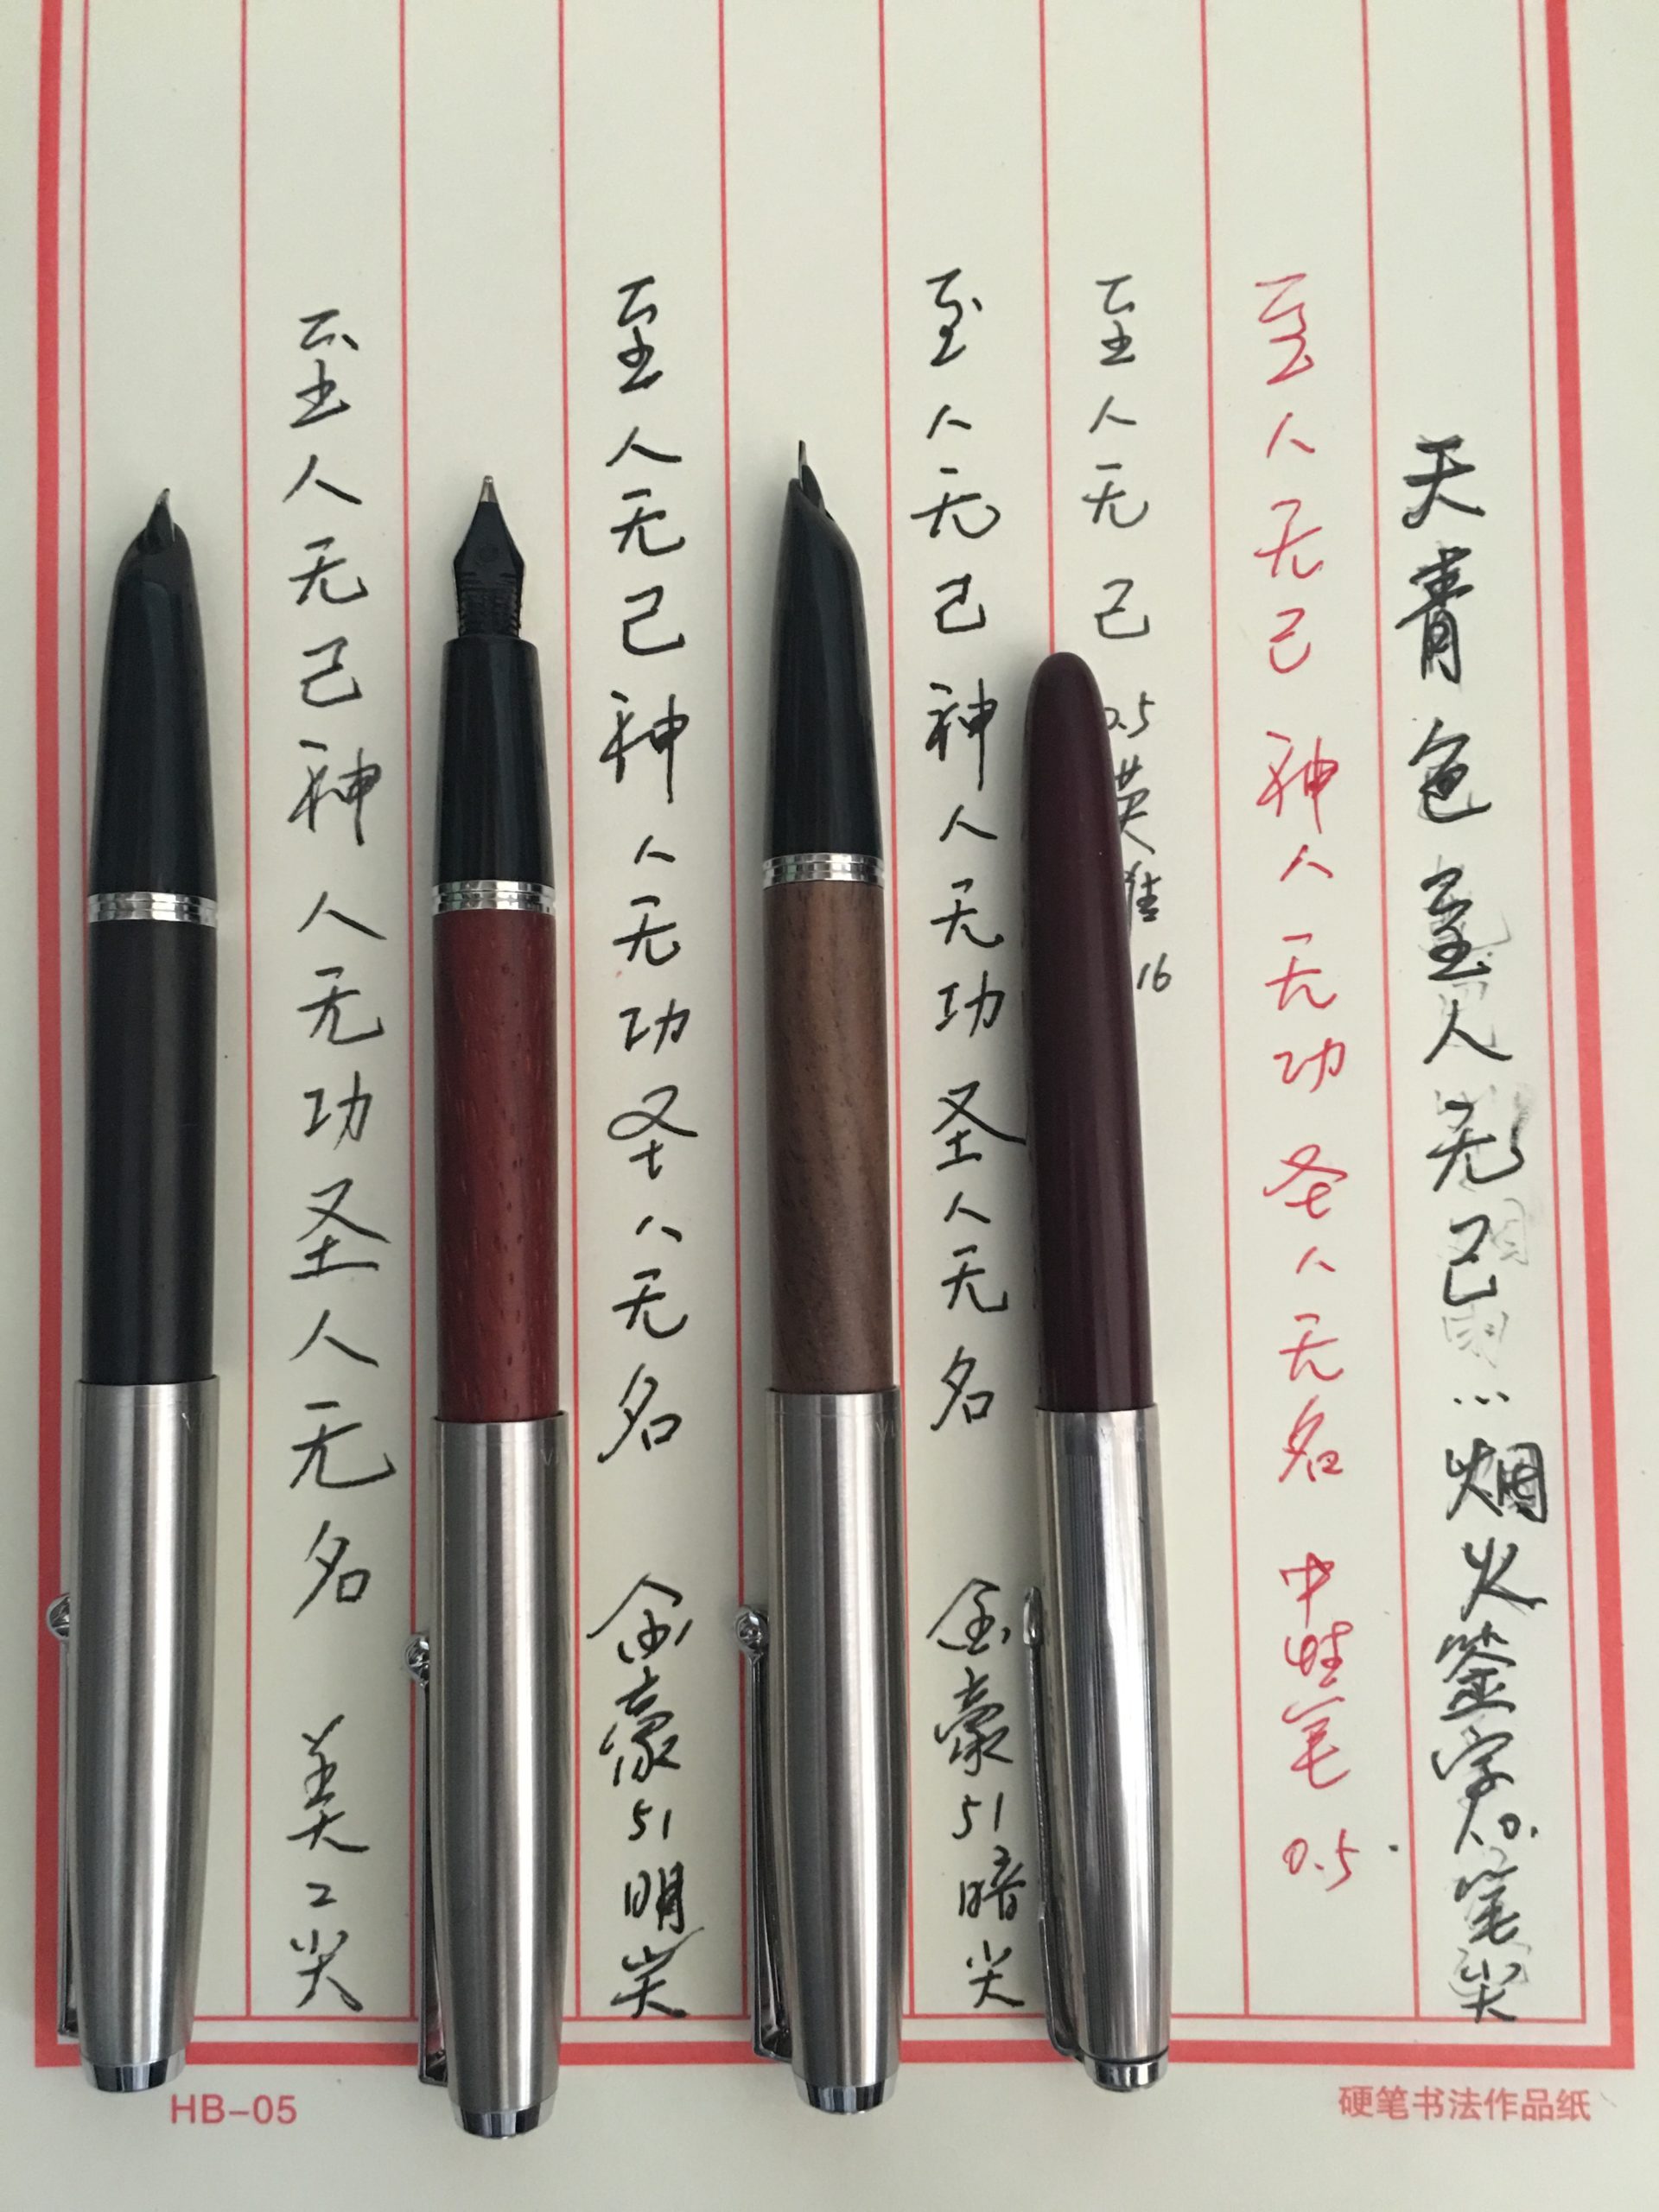 天青色 至人无己…烟火签字笔尖
至人无己 神人无功 圣人无名 中性笔 0.5
至人无己 0.5 英雄 16
至人无己 神人无功 圣人无名 金豪51暗尖
至人无己 神人无功 圣人无名 金豪51明尖
至人无己 神人无功 圣人无名 美工尖
HB-05
硬笔书法作品纸